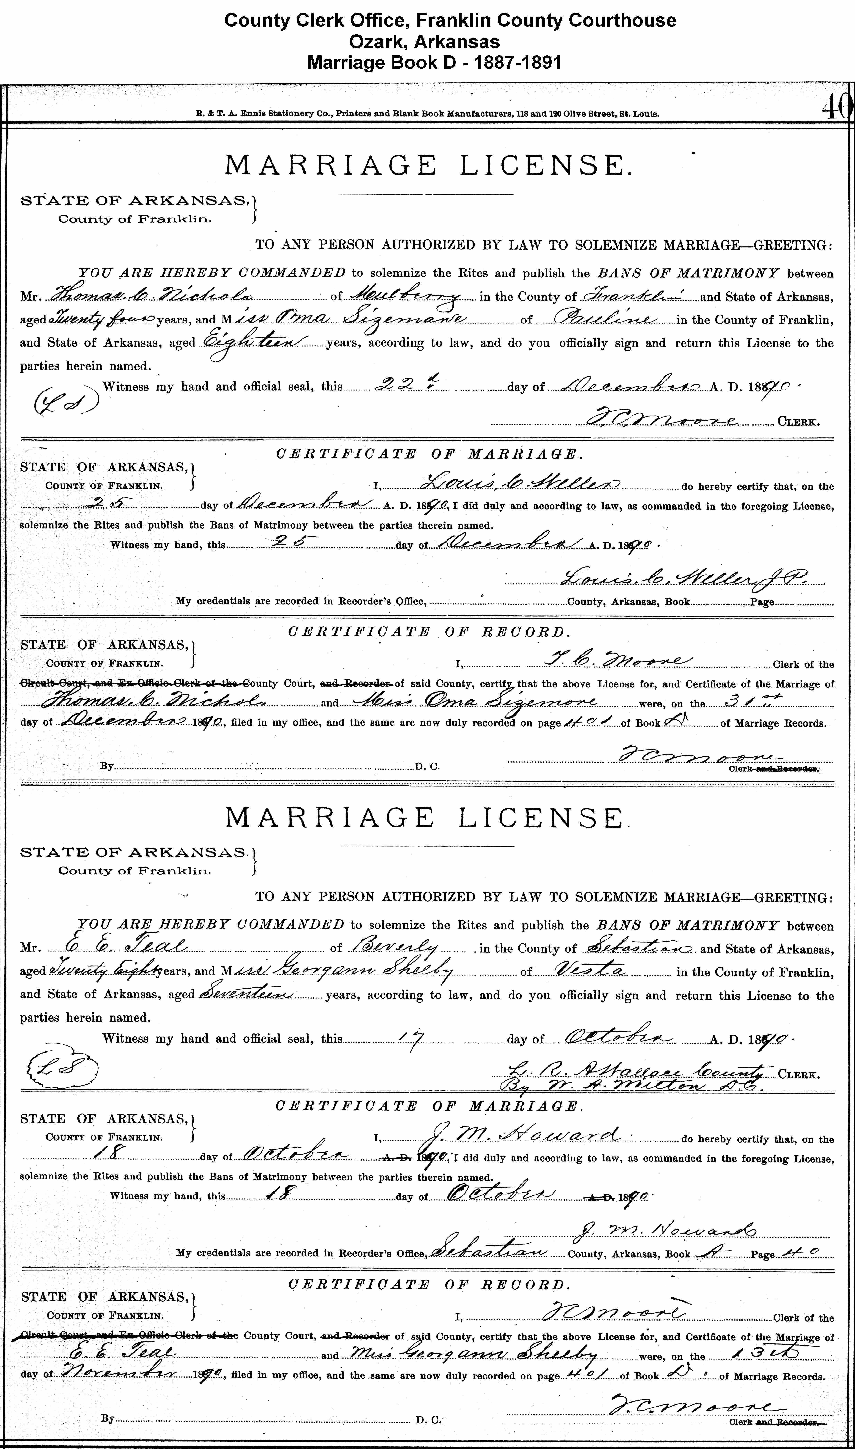 County Clerk Office, Franklin County Courthouse
Ozark, Arkansas
Marriage Book D - 1887-1891
40
R. & T. A. Ennis Stationery Co., Printers and Blank Book Manufacturers, 118 and 120 Olive Street, St. Louis.
MARRIAGE LICENSE.
STATE OF ARKANSAS,
County of Franklin.
TO ANY PERSON AUTHORIZED BY LAW TO SOLEMNIZE MARRIAGE—GREETING:
YOU ARE HEREBY COMMANDED to solemnize the Rites and publish the BANS OF MATRIMONY between
Mr. Thomas C. Nichols of Mulberry in the County of Franklin and State of Arkansas,
aged Twenty four years, and Miss Oma Sizemore of Pauline in the County of Franklin,
and State of Arkansas, aged Eighteen years, according to law, and do you officially sign and return this License to the
parties herein named.
Witness my hand and official seal, this 22d day of December A. D. 1890.
(L S)
T.C. Moore CLERK.
CERTIFICATE OF MARRIAGE.
STATE OF ARKANSAS,
COUNTY OF FRANKLIN. I, Louis C. Weller do hereby certify that, on the
25 day of December A. D. 1890, I did duly and according to law, as commanded in the foregoing License,
solemnize the Rites and publish the Bans of Matrimony between the parties therein named.
Witness my hand, this 25 day of December A. D. 1890.
Louis C. Weller, J P.
My credentials are recorded in Recorder's Office, County, Arkansas, Book Page
CERTIFICATE OF RECORD.
STATE OF ARKANSAS,
COUNTY OF FRANKLIN. I, T. C. Moore Clerk of the
Circuit Court, and Ex Officio Clerk of the County Court, and Recorder of said County, certify that the above License for, and Certificate of the Marriage of
Thomas C. Nichols and Miss Oma Sizemore were, on the 31st
day of December 1890, filed in my office, and the same are now duly recorded on page 401 of Book D of Marriage Records.
T.C. Moore
By D. C. Clerk and Recorder.
MARRIAGE LICENSE.
STATE OF ARKANSAS.
County of Franklin.
TO ANY PERSON AUTHORIZED BY LAW TO SOLEMNIZE MARRIAGE—GREETING:
YOU ARE HEREBY COMMANDED to solemnize the Rites and publish the BANS OF MATRIMONY between
Mr. E. E. Teal of Beverly in the County of Sebastian and State of Arkansas,
aged Twenty Eight years, and Miss Georgann Shelby of Vesta in the County of Franklin,
and State of Arkansas, aged Seventeen years, according to law, and do you officially sign and return this License to the
parties herein named.
Witness my hand and official seal, this 17 day of October A. D. 1890.
(L S)
L. R. A Wallace County CLERK.
By W. A. Milton D.C.
CERTIFICATE OF MARRIAGE.
STATE OF ARKANSAS,
COUNTY OF FRANKLIN. I, J. M. Howard do hereby certify that, on the
18 day of October A. D. 1890, I did duly and according to law, as commanded in the foregoing License,
solemnize the Rites and publish the Bans of Matrimony between the parties therein named.
Witness my hand, this 18 day of October A. D. 1890
J. M. Howard
My credentials are recorded in Recorder's Office, Sebastian County, Arkansas, Book A Page 40
CERTIFICATE OF RECORD.
STATE OF ARKANSAS,
COUNTY OF FRANKLIN. I, T.C. Moore Clerk of the
Circuit Court, and Ex Officio Clerk of the County Court, and Recorder of said County, certify that the above License for, and Certificate of the Marriage of
E. E. Teal and Miss Georgann Shelby were, on the 13th
day of November 1890, filed in my office, and the same are now duly recorded on page 401 of Book D. of Marriage Records.
T.C. Moore
By D. C. Clerk and Recorder.